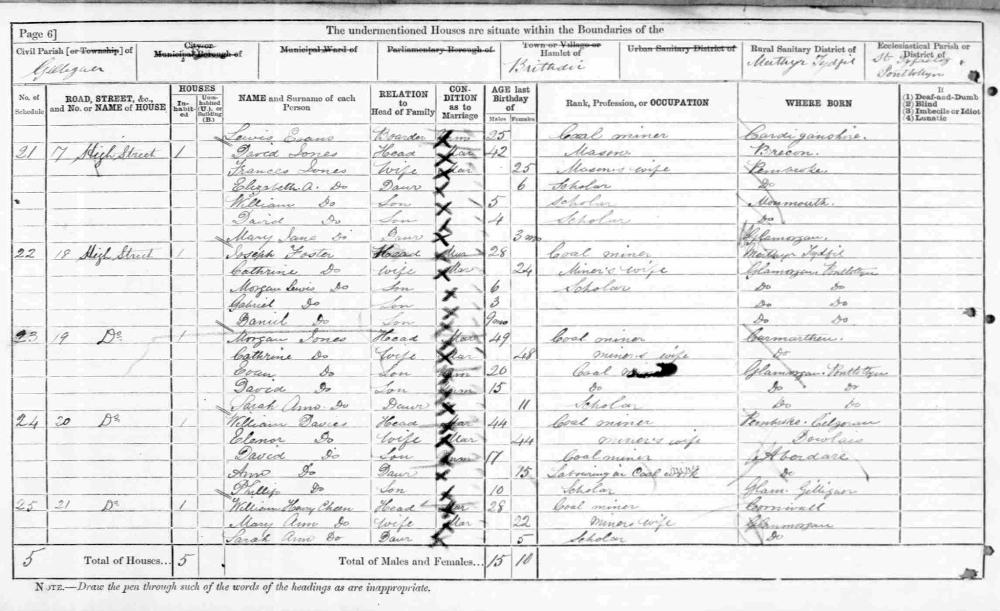 Page 6] The undermentioned Houses are situate within the Boundaries of the
Civil Parish [or Township] of City or Municipal Borough of Municipal Ward of Parliamentary Borough of Town or Village or Hamlet of Urban Sanitary District of Rural Sanitary District of Ecclesiastical Parish or District of
Gelligaer Brithdir Merthyr Tydfil St Pontlottyn
No. of Schedule ROAD, STREET, &c., and No. or NAME of HOUSE HOUSES Inhabited Uninhabited (U.), or Building (B.) NAME and Surname of each Person RELATION to Head of Family CONDITION as to Marriage AGE last Birthday of Males Females Rank, Profession, or OCCUPATION WHERE BORN If (1) Deaf-and-Dumb (2) Blind (3) Imbecile or Idiot (4) Lunatic
Lewis Evans Boarder 25 Coal miner Cardiganshire.
21 17 High Street 1 David Jones Head Mar 42 Mason Brecon.
Frances Jones Wife Mar 25 Mason's wife Pembroke
Elizabeth A. Do Daur 6 Scholar Do
William Do Son 5 Scholar Monmouth.
David Do Son 4 Scholar Do
Mary Jane Do Daur 3 mo Glamorgan.
22 18 High Street 1 Joseph Foster Head Mar 28 Coal miner Merthyr Tydfil
Cathrine Do Wife Mar 24 Miner's wife Glamorgan Pontlottyn
Morgan Lewis Do Son 6 Scholar Do Do
Gabriel Do Son 3 Do Do
Daniel Do Son 9 mo Do Do
23 19 Do 1 Morgan Jones Head Mar 49 Coal miner Carmarthen.
Cathrine Do Wife Mar 48 miner's wife Do
Evan Do Son 20 Coal Glamorgan. Pontlottyn
David Do Son 15 Do Do Do
Sarah Ann Do Daur 11 Scholar Do Do
24 20 Do 1 William Davies Head Mar 44 Coal miner Pembroke. Cilgeran
Elenor Do Wife Mar 44 miner's wife Dowlais
David Do Son 17 Coal miner Aberdare
Ann Do Daur 15 Labouring in Coal Do
Phillip Do Son 10 Scholar Glam. Gelligaer
25 21 Do 1 William Henry Head Mar 28 Coal miner Cornwall
Mary Ann Do Wife Mar 22 Miner's wife Glanmorgan
Sarah Ann Do Daur 5 Scholar Do
5 Total of Houses... 5 Total of Males and Females... 15 10
NOTE.—Draw the pen through such of the words of the headings as are inappropriate.